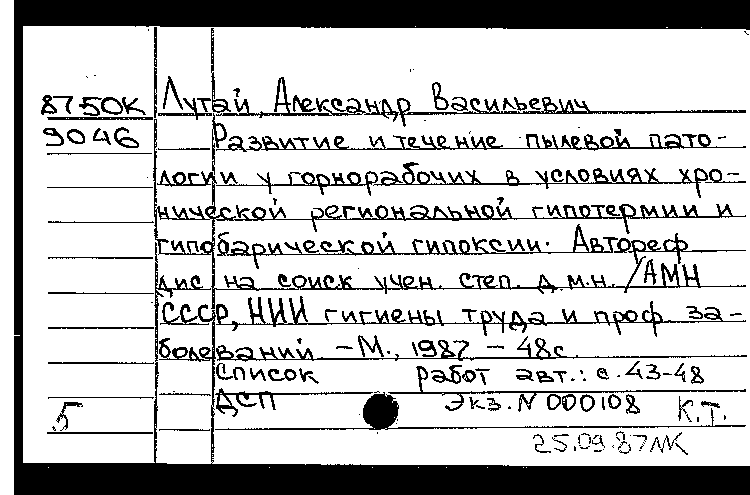 8750К Лутай, Александр Васильевич
9046 Развитие и течение пылевой пато-
логии у горнорабочих в условиях хро-
нической региональной гипотермии и
гипобарической гипоксии. Автореф
дис на соиск учен. степ. д.м.н. /АМН
СССР, НИИ гигиены труда и проф. за-
болеваний. - М., 1987 - 48с.
Список работ авт.: с. 43-48
5 ДСП Экз. N 000108 К.Т.
25.09.87МК